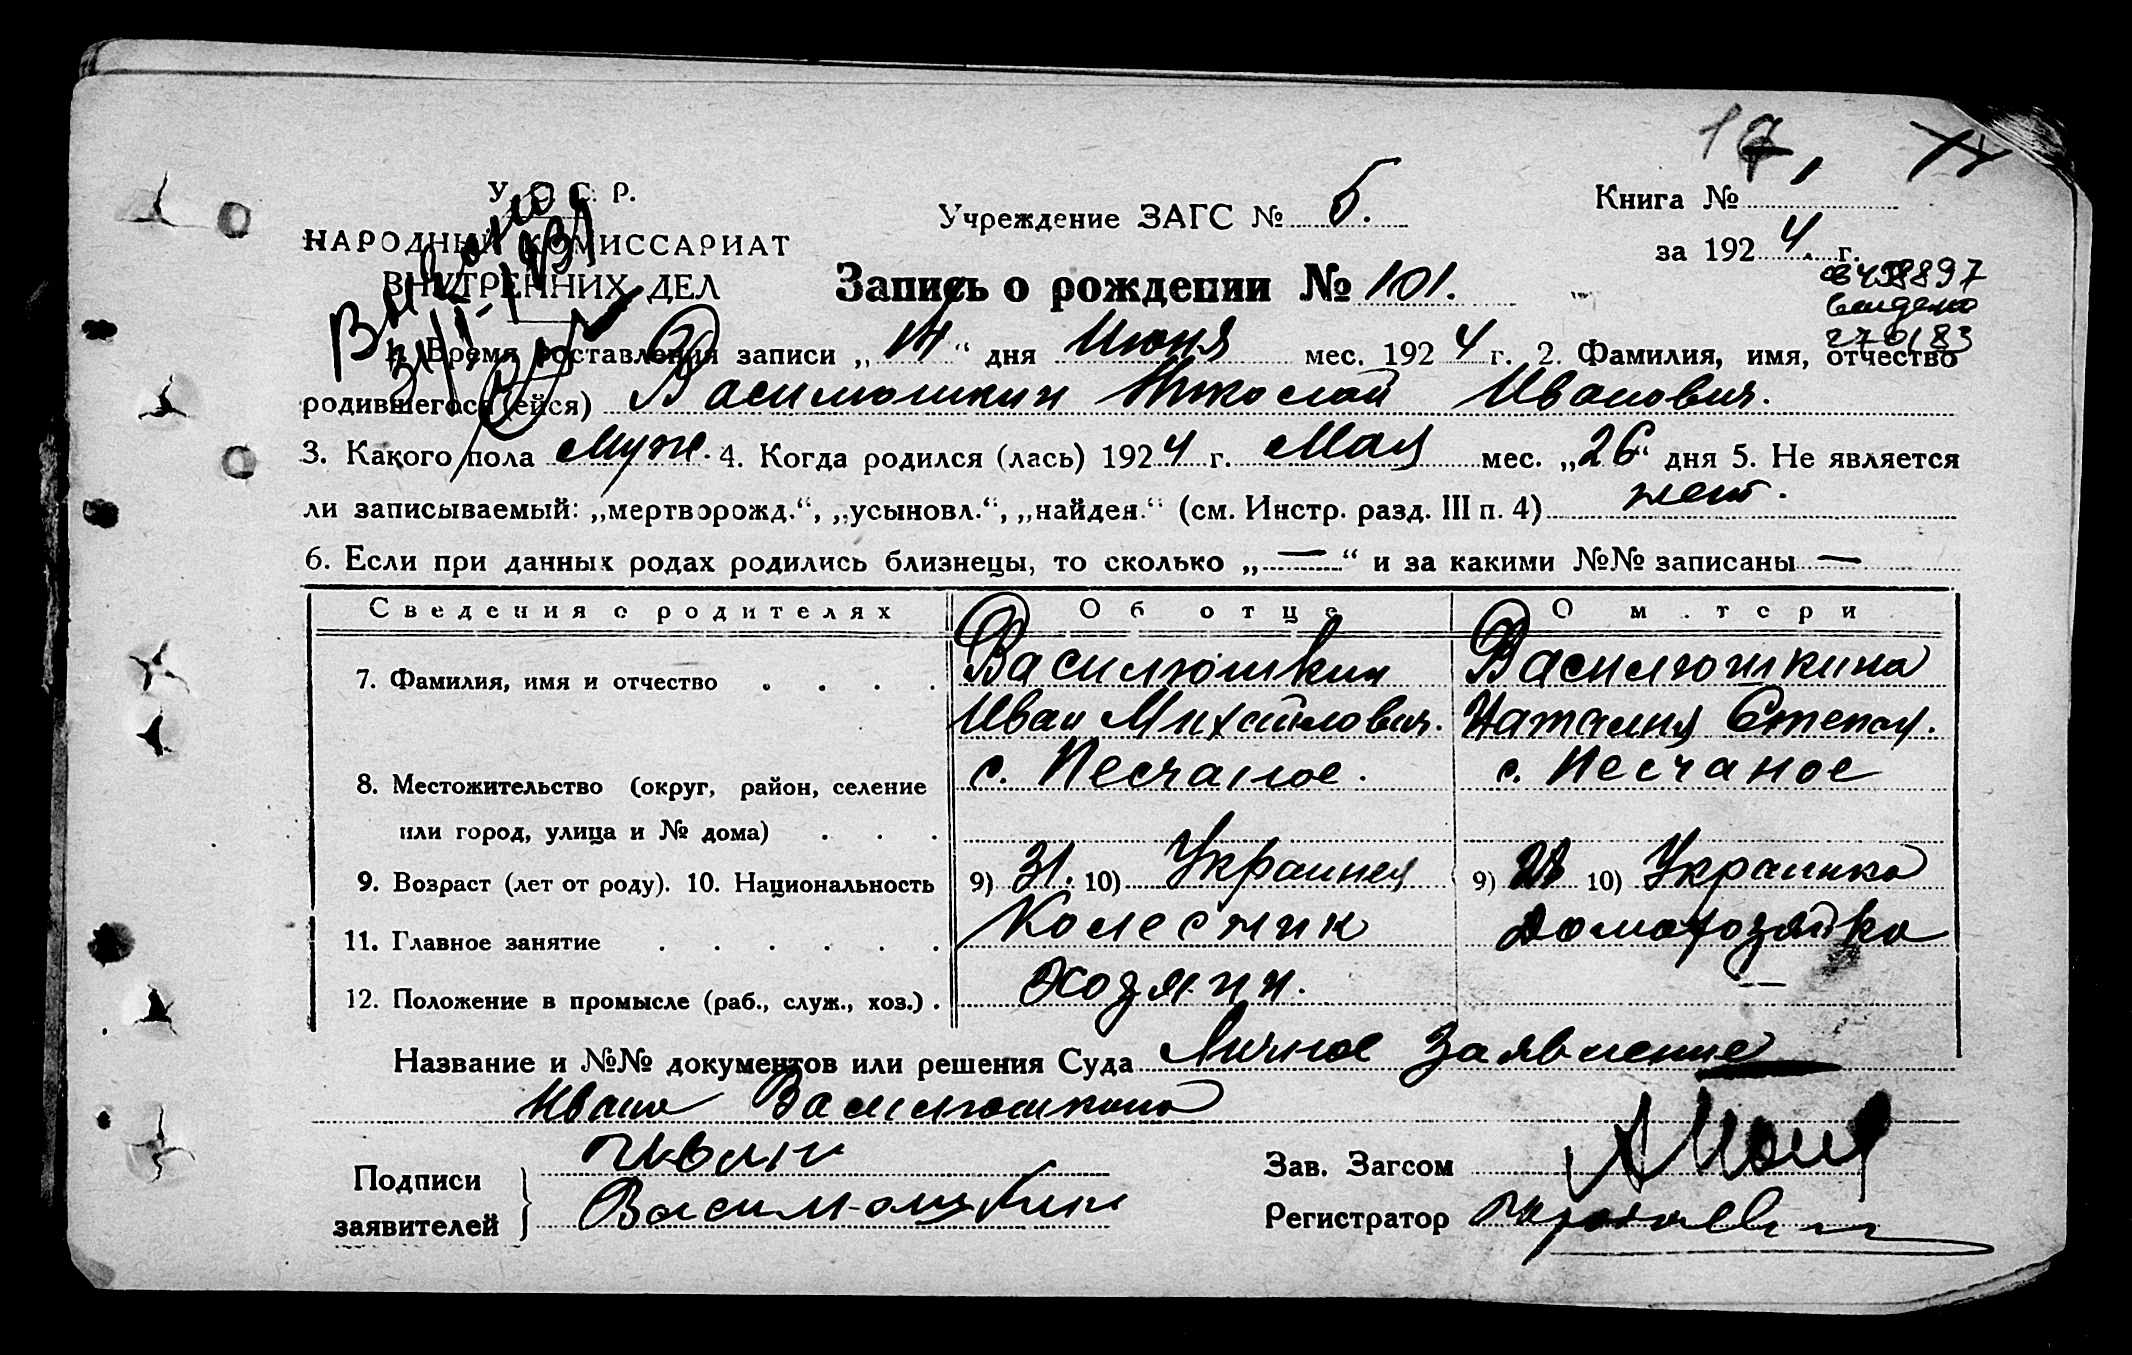 У. С. С. Р.
НАРОДНЫЙ КОМИССАРИАТ
ВНУТРЕННИХ ДЕЛ
Учреждение ЗАГС № 5.
Книга №
за 1924 г.
Запись о рождении № 101.
свидено
270183
1. Время составления записи „ “ дня Июня мес. 1924 г. 2. Фамилия, имя, отчество
родившегося (ейся) Василюшкин Николай Иванович.
3. Какого пола муж. 4. Когда родился (лась) 1924 г. Мая мес. „26“ дня 5. Не является
ли записываемый: „мертворожд.“, „усыновл.“, „найден.“ (см. Инстр. разд. III п. 4) нет.
6. Если при данных родах родились близнецы, то сколько „—“ и за какими №№ записаны —
Сведения о родителях Об отце О матери
7. Фамилия, имя и отчество . . . . Василюшкин Василюшкина
Иван Михайлович. Наталия Степан.
8. Местожительство (округ, район, селение с. Песчаное. с. Песчаное
или город, улица и № дома) . . .
9. Возраст (лет от роду). 10. Национальность 9) 31. 10) Украинец 9) 28 10) Украинка
11. Главное занятие . . . . . . Колесник домохозяйка
12. Положение в промысле (раб., служ., хоз.) . Хозяин. —
Название и №№ документов или решения Суда Личное заявление
Ивана Василюшкина
Подписи
заявителей
Иван
Василюшкин
Зав. Загсом
Регистратор